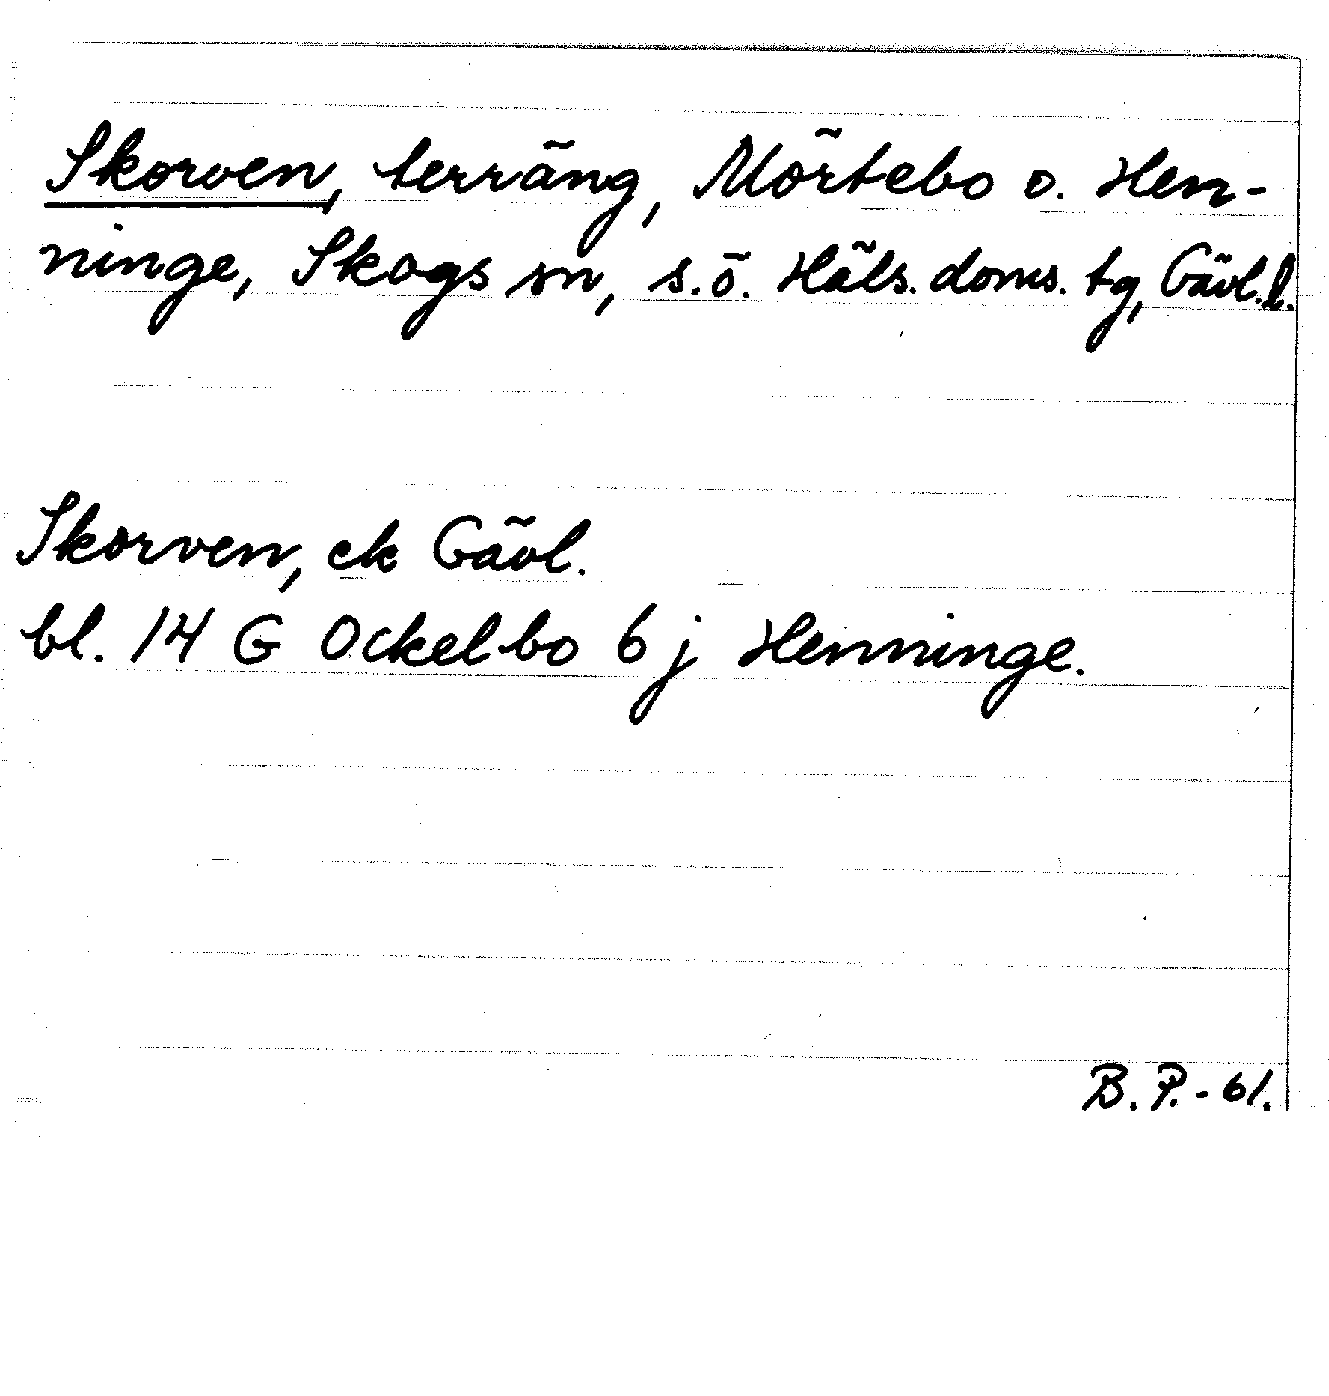 Skorven, terräng, Mörtebo o. Hen-
ninge, Skogs sn, s.ö. Häls. doms. tg, Gävl.l.
Skorven, ek Gävl.
bl. 14 G Ockelbo 6 j Henninge.
B.P.-61.